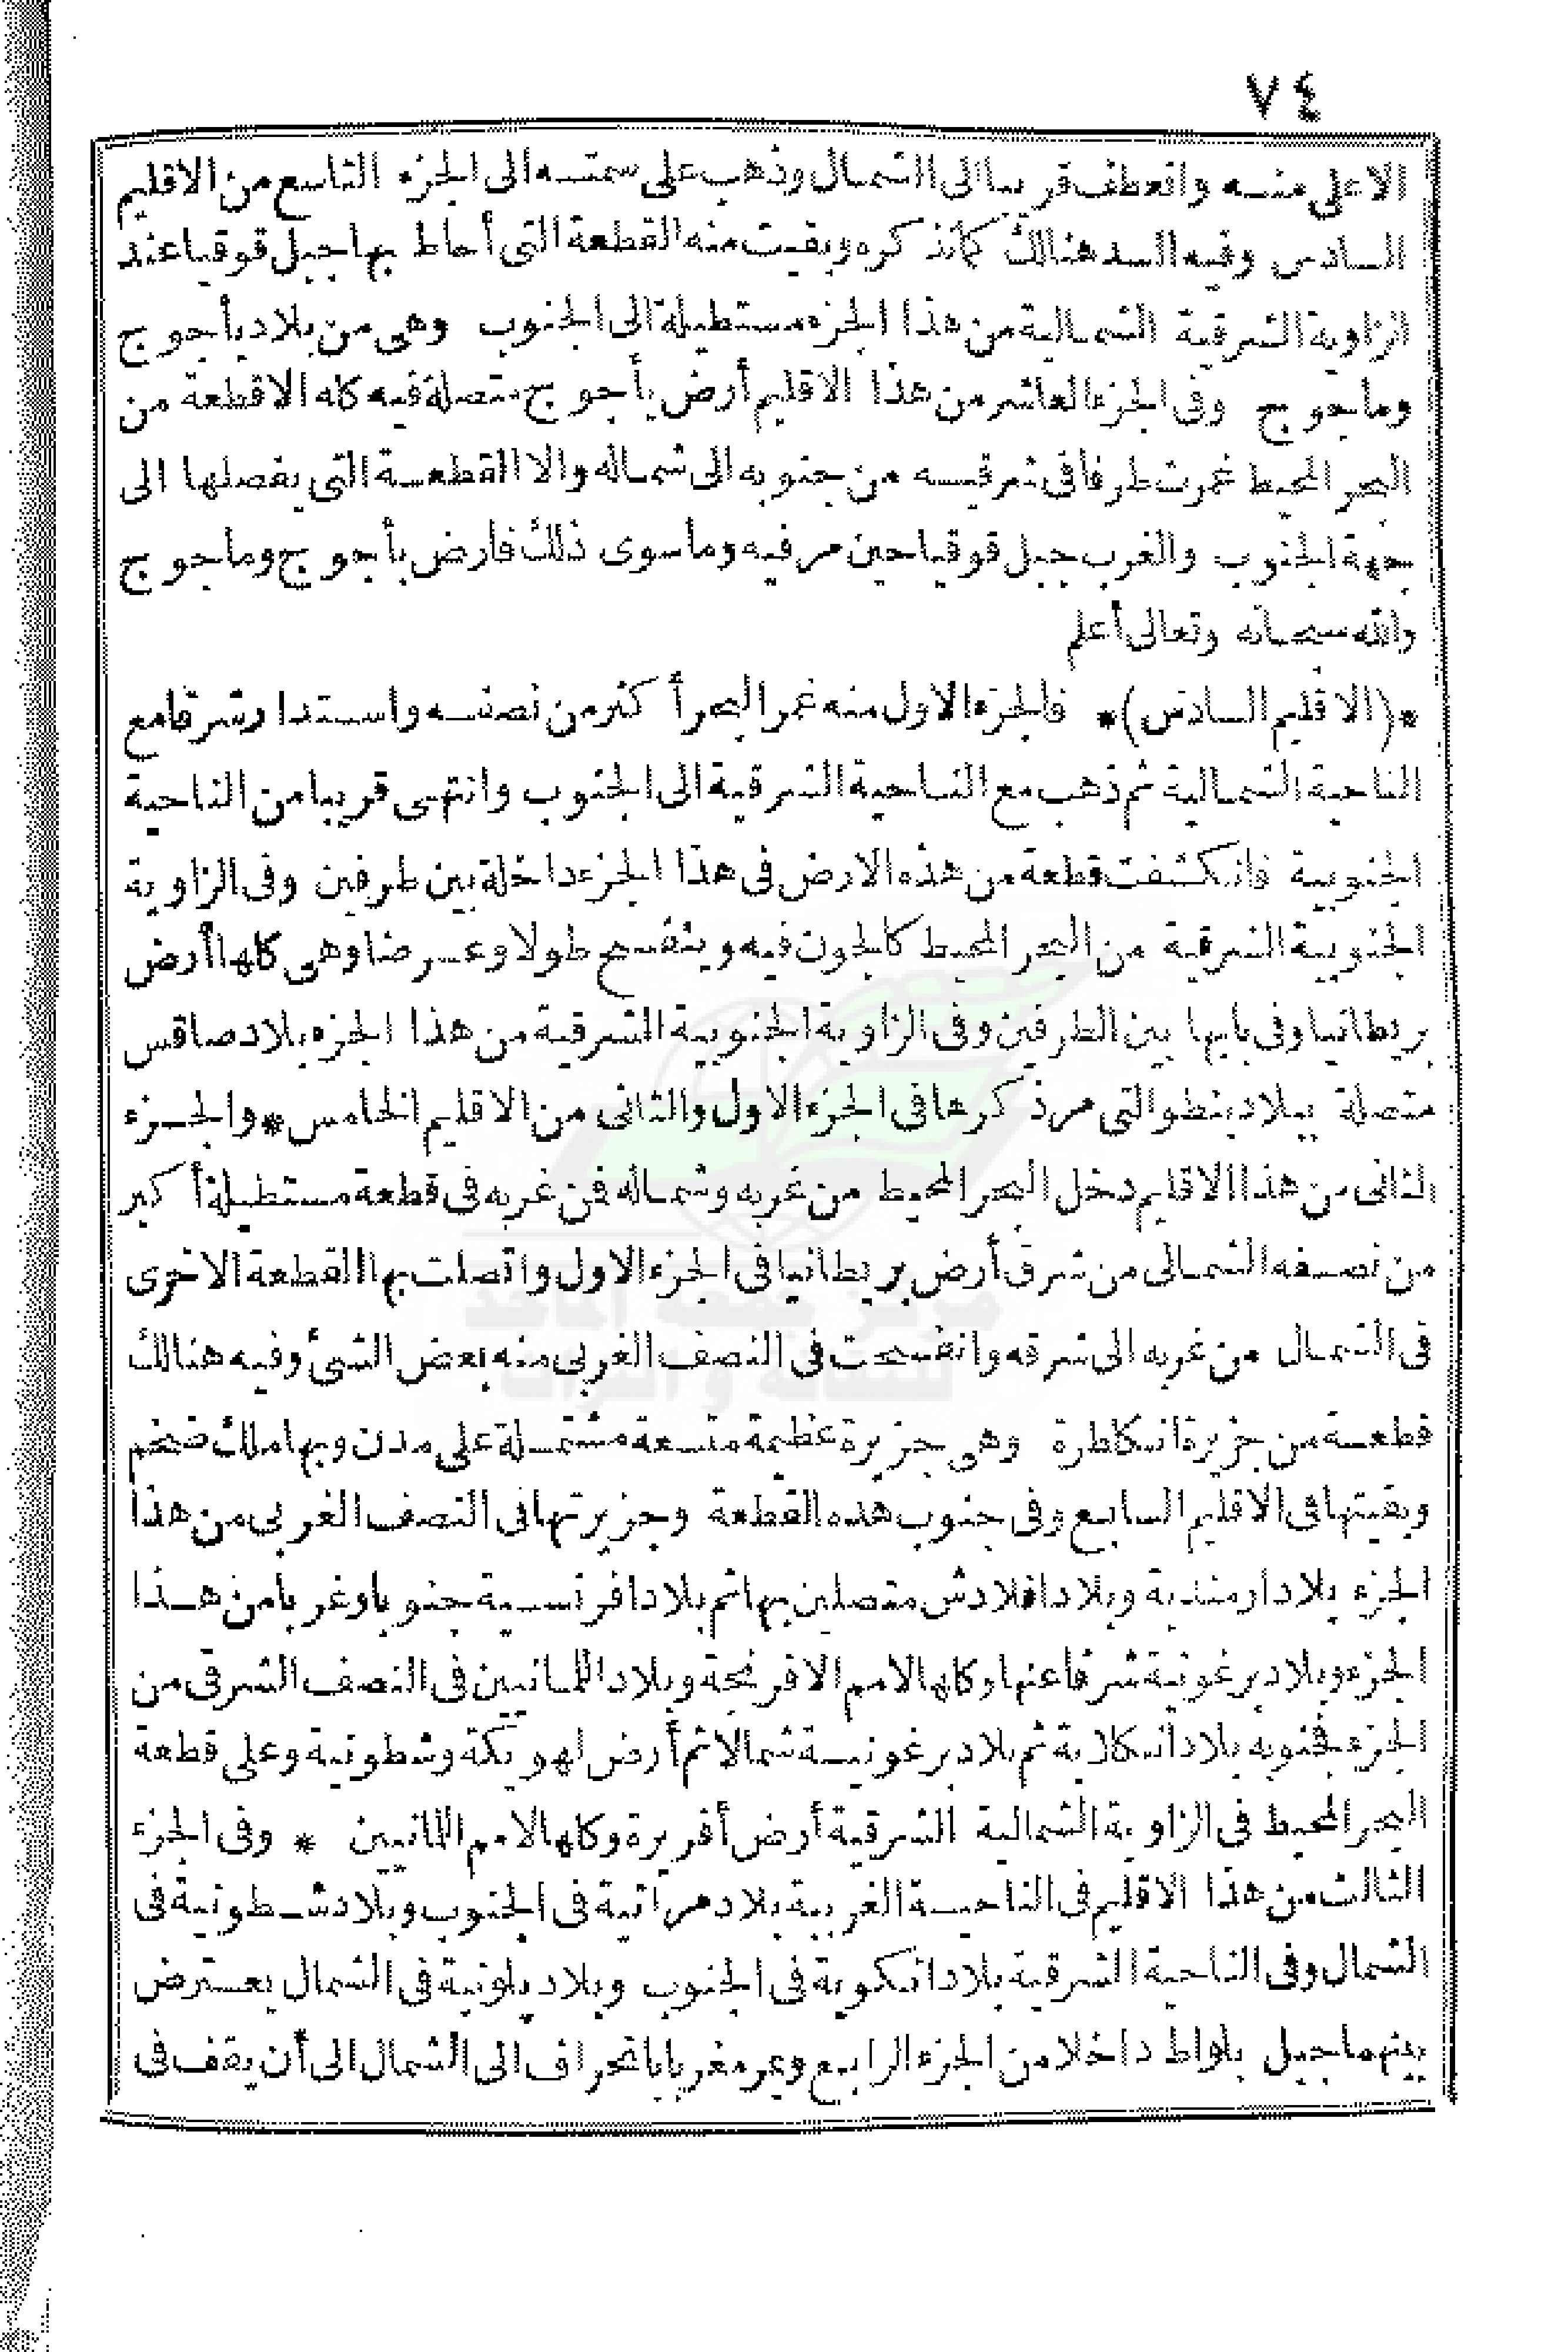 ٧٤
الاعلى منه وانعطف قريبا الى الشمال وذهب على سمته الى الجزء التاسع من الاقليم
السادس وفيه السد هنالك كما نذكره وبقيت منه القطعة التى أحاط بها جبل قوقيا عند
الزاوية الشرقية الشمالية من هذا الجزء مستطيلة الى الجنوب وهى من بلاد يأجوج
ومأجوج وفى الجزء العاشر من هذا الاقليم أرض يأجوج متصلة فيه كله الاقطعة من
البحر المحيط غمرت طرفا فى شرقيه من جنوبه الى شماله والا القطعة التى يفصلها الى
جهة الجنوب والغرب جبل قوقيا حين مر فيه وما سوى ذلك فارض يأجوج ومأجوج
والله سبحانه وتعالى أعلم
*(الاقليم السادس)* فالجزء الاول منه غمر البحر أكثر من نصفه واستدار شرقا مع
الناحية الشمالية ثم ذهب مع الناحية الشرقية الى الجنوب وانتهى قريبا من الناحية
الجنوبية فانكشفت قطعة من هذه الارض فى هذا الجزء داخلة بين طرفين وفى الزاوية
الجنوبية الشرقية من البحر المحيط كالجون فيه وينفسح طولا وعرضا وهى كلها أرض
بريطانيا وفى بابها بين الطرفين وفى الزاوية الجنوبية الشرقية من هذا الجزء بلاد صاقس
متصلة ببلاد بنطو التى مر ذكرها فى الجزء الاول والثانى من الاقليم الخامس * والجزء
الثانى من هذا الاقليم دخل البحر المحيط من غربه وشماله فمن غربه فى قطعة مستطيلة أكبر
من نصفه الشمالى من شرق أرض بريطانيا فى الجزء الاول واتصلت بها القطعة الاخرى
فى الشمال من غربه الى شرقه وانفسحت فى النصف الغربى منه بعض الشئ وفيه هنالك
قطعة من جزيرة انكلطرة وهى جزيرة عظيمة متسعة مشتملة على مدن وبها ملك ضخم
وبقيتها فى الاقليم السابع وفى جنوب هذه القطعة وجزيرتها فى النصف الغربى من هذا
الجزء بلاد أرمندية وبلاد افلادش متصلين بها ثم بلاد افرنسية جنوبا وغربا من هذا
الجزء وبلاد برغونية شرقا عنها وكلها لامم الافرنجة وبلاد اللمانيين فى النصف الشرقى من
الجزء فجنوبه بلاد أنكلاية ثم بلاد برغونية شمالا ثم أرض لهويكة وشطونية وعلى قطعة
البحر المحيط فى الزاوية الشمالية الشرقية أرض أفريرة وكلها لامم اللمانيين * وفى الجزء
الثالث من هذا الاقليم فى الناحية الغربية بلاد مراتية فى الجنوب وبلاد شطونية فى
الشمال وفى الناحية الشرقية بلاد انكوية فى الجنوب وبلاد بلونية فى الشمال يعترض
بينهما جبل بلواط داخلا من الجزء الرابع ويمر مغربا بانحراف الى الشمال الى أن يقف فى